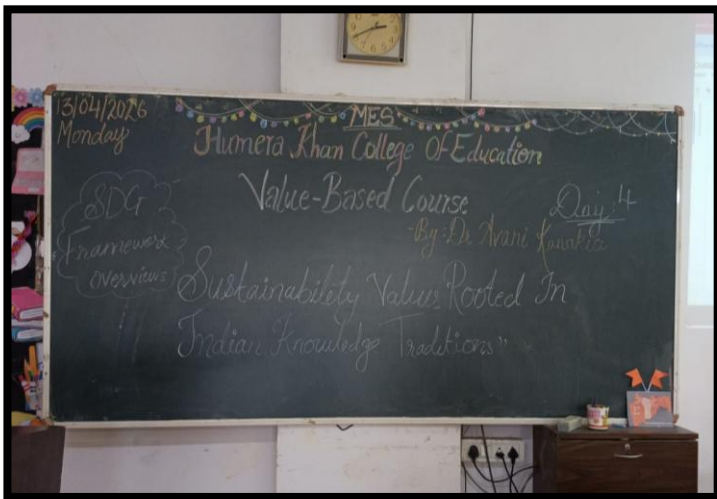 13/04/2026
Monday
MES
Humera Khan College Of Education
Value-Based Course
Day: 4
-By: Dr Avani Kanakia
SDG
Framework
overviews
Sustainability Values Rooted In
Indian Knowledge Traditions"